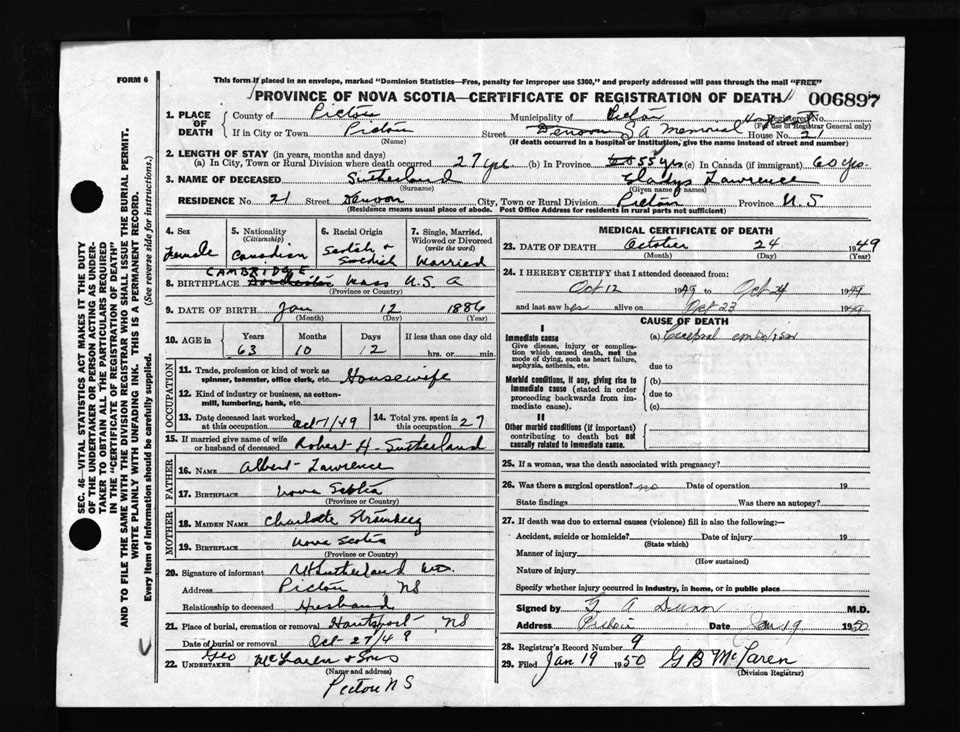 FORM 6
This form if placed in an envelope, marked "Dominion Statistics—Free, penalty for improper use $300," and properly addressed will pass through the mail "FREE"
PROVINCE OF NOVA SCOTIA—CERTIFICATE OF REGISTRATION OF DEATH
006897
1. PLACE OF DEATH County of Pictou Municipality of Pictou Registered No.
(For use of Registrar General only)
If in City or Town Pictou Street Denoon S A Memorial House No. 21
(Name) (If death occurred in a hospital or institution, give the name instead of street and number)
2. LENGTH OF STAY (in years, months and days)
(a) In City, Town or Rural Division where death occurred 27 yrs (b) In Province 55 yrs (c) In Canada (if immigrant) 60 yrs.
3. NAME OF DECEASED Sutherland Gladys Lawrence
(Surname) (Given name or names)
RESIDENCE No. 21 Street Denoon City, Town or Rural Division Pictou Province N.S
(Residence means usual place of abode. Post Office Address for residents in rural parts not sufficient)
4. Sex
Female
5. Nationality (Citizenship)
Canadian
6. Racial Origin
Scotch & Swedish
7. Single, Married, Widowed or Divorced (write the word)
Married
CAMBRIDGE
8. BIRTHPLACE Mass U.S.A
(Province or Country)
9. DATE OF BIRTH Jan 12 1886
(Month) (Day) (Year)
10. AGE in Years Months Days If less than one day old
63 10 12 hrs. or min.
OCCUPATION
11. Trade, profession or kind of work as spinner, teamster, office clerk, etc. Housewife
12. Kind of industry or business, as cotton-mill, lumbering, bank, etc.
13. Date deceased last worked at this occupation Oct 1/49
14. Total yrs. spent in this occupation 27
15. If married give name of wife or husband of deceased Robert H. Sutherland
FATHER
16. NAME Albert Lawrence
17. BIRTHPLACE Nova Scotia
(Province or Country)
MOTHER
18. MAIDEN NAME Charlotte
19. BIRTHPLACE Nova Scotia
(Province or Country)
20. Signature of informant Sutherland
Address Pictou NS
Relationship to deceased Husband
21. Place of burial, cremation or removal Hantsport NS
Date of burial or removal Oct 27/49
22. UNDERTAKER Geo McLaren & Sons
(Name and address)
Pictou NS
MEDICAL CERTIFICATE OF DEATH
23. DATE OF DEATH October 24 1949
(Month) (Day) (Year)
24. I HEREBY CERTIFY that I attended deceased from:
Oct 12 1949 to Oct 24 1949
and last saw her alive on Oct 23 1949
CAUSE OF DEATH
I
Immediate cause
Give disease, injury or complication which caused death, not the mode of dying, such as heart failure, asphyxia, asthenia, etc.
(a) Cerebral embolism
due to
Morbid conditions, if any, giving rise to immediate cause (stated in order proceeding backwards from immediate cause).
(b)
due to
(c)
II
Other morbid conditions (if important) contributing to death but not causally related to immediate cause.
25. If a woman, was the death associated with pregnancy?
26. Was there a surgical operation? no Date of operation 19
State findings Was there an autopsy?
27. If death was due to external causes (violence) fill in also the following:—
Accident, suicide or homicide? Date of injury 19
(State which)
Manner of injury
(How sustained)
Nature of injury
Specify whether injury occurred in industry, in home, or in public place
Signed by A Dunn M.D.
Address Pictou Date Jan 19 1950
28. Registrar's Record Number 9
29. Filed Jan 19 1950 G B McLaren
(Division Registrar)
SEC. 46—VITAL STATISTICS ACT MAKES IT THE DUTY
OF THE UNDERTAKER OR PERSON ACTING AS UNDER-
TAKER TO OBTAIN ALL THE PARTICULARS REQUIRED
IN THE "CERTIFICATE OF REGISTRATION OF DEATH"
AND TO FILE THE SAME WITH THE DIVISION REGISTRAR WHO SHALL ISSUE THE BURIAL PERMIT.
WRITE PLAINLY WITH UNFADING INK. THIS IS A PERMANENT RECORD.
Every item of information should be carefully supplied. (See reverse side for instructions.)